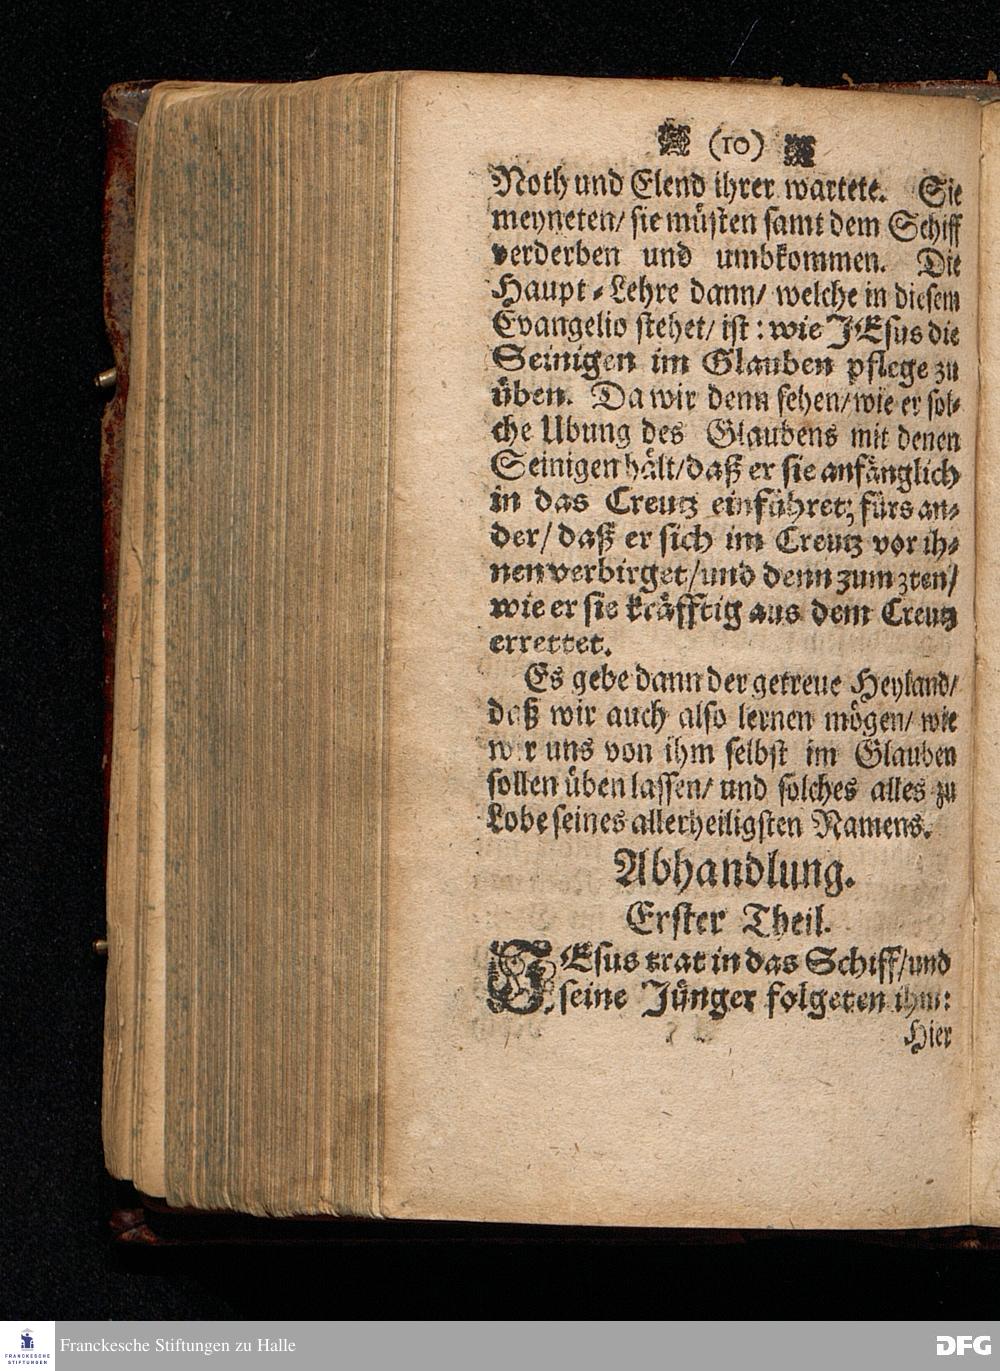 (10)
Noth und Elend ihrer wartete. Sie
meyneten/ sie müsten samt dem Schiff
verderben und umbkommen. Die
Haupt-Lehre dann/ welche in diesem
Evangelio stehet/ ist: wie JEsus die
Seinigen im Glauben pflege zu
üben. Da wir denn sehen/ wie er sol-
che Ubung des Glaubens mit denen
Seinigen hält/ daß er sie anfänglich
in das Creutz einführet; fürs an-
der/ daß er sich im Creutz vor ih-
nen verbirget/ und denn zum 3ten/
wie er sie kräfftig aus dem Creutz
errettet.
Es gebe dann der getreue Heyland/
daß wir auch also lernen mögen/ wie
wir uns von ihm selbst im Glauben
sollen üben lassen/ und solches alles zu
Lobe seines allerheiligsten Namens.
Abhandlung.
Erster Theil.
JEsus trat in das Schiff/ und
seine Jünger folgeten ihm:
Hier
FRANCKESCHE STIFTUNGEN
Franckesche Stiftungen zu Halle
DFG